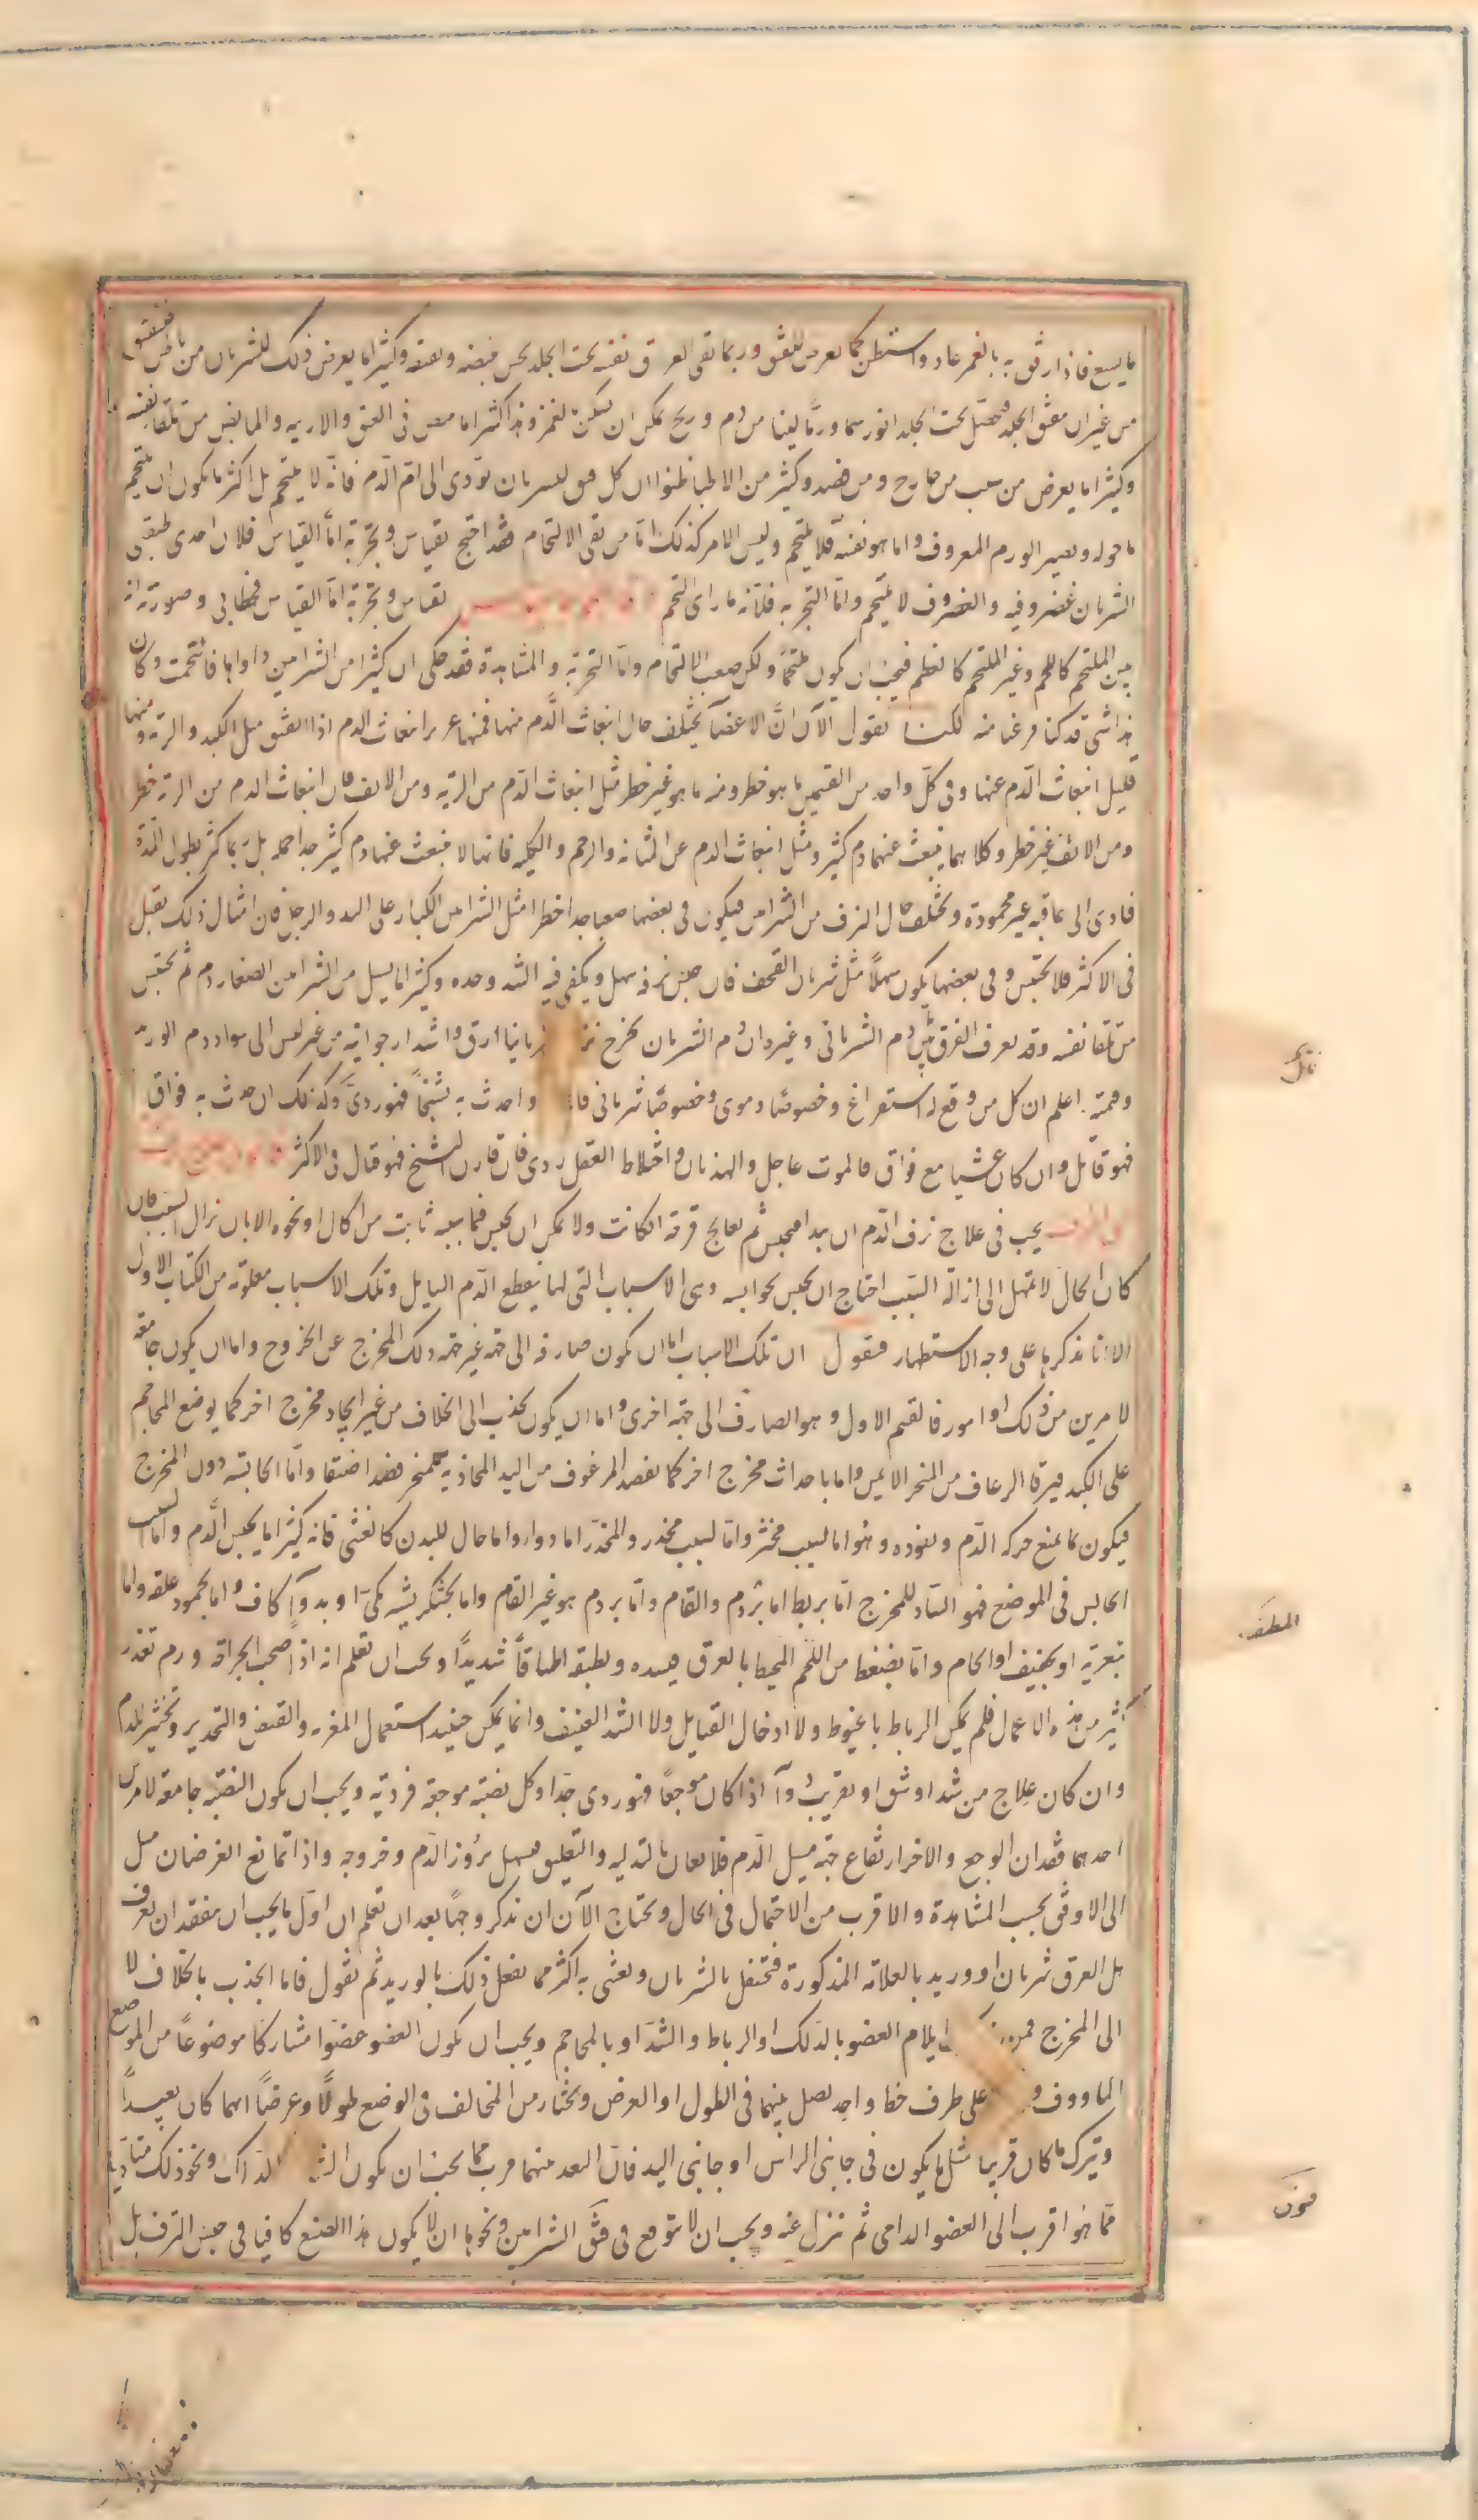 ما يسيع فاذا رفق به بالغمر عاد واستبطن كما يعرض للفتق وربما بقى العرق نفسه تحت الجلد يحس نبضه وكثيرا ما يعرض ذلك للشريان من باطن
من غير ان ينشق الجلد تحت الجلد لينا من دم وريح يمكن ان يسكن لغمز وهذا اكثر ما يعرض فى العنق والاربيه من تلقا نفسه
وكثيرا ما يعرض من سبب من خارج ومن فصد وكثير من الاطبا ظنوا ان كل للشريان يؤدى الى ام الدم فانه لا يلتحم بل اكثر ما يكون ان يلتحم
ما حوله ويصير الورم المعروف واما هو نفسه فلا يلتحم وليس الامر كذلك اما من نفى الالتحام فقد احتج بقياس وتجربة اما القياس فلان احدى طبقتى
الشريان غضروفيه والغضروف لا يلتحم واما التجربه فلانه ما راى التحم بقياس وتجربة اما القياس فخطابى وصورته انه
بين الملتحم كاللحم وغير الملتحم كالعظم فيجب ان يكون ملتحما ولكن صعب الالتحام واما التجربة والمشاهدة فقد حكى ان كثيرا من الشرايين داواها فالتحمت وكان
هذا شى قد كنا فرغنا منه لكنا نقول الآن انّ الاعضآ يختلف حال انبعاث الدّم منها فمنها غزير انبعاث الدم اذا انفتق مثل الكبد والرئة ومنها
قليل انبعاث الدّم عنها وفى كلّ واحد من القسمين ما هو خطر ومنه ما هو غير خطر مثل انبعاث الدّم من الرية ومن الانف فان انبعاث الدم من الرئة خطر
ومن الانف غير خطر وكلاهما ينبعث عنهما دم كثير ومثل انبعاث الدم عن المثانه والرحم والكليه فانها لا ينبعث عنها دم كثير جدا جمله بل ربما كثر بطول المدّة
فادى الى عاقبه غير محمودة ويختلف حال النزف من الشرايين فيكون فى بعضها صعبا جدا خطرا مثل الشرايين الكبار على اليد والرجل فان امثال ذلك تقتل
فى الاكثر فلا تحتبس وفى بعضها يكون سهلا مثل شريان القحف فان حبس نزفه سهل ويكفى فيه الشد وحده وكثيرا ما يسيل من الشرايين الصغار دم ثم يحتبس
من تلقا نفسه وقد يعرف الفرق بين دم الشريانى وغيره ان دم الشريان يخرج ارق واشد ارجوانية من غير ليس الى سواد دم الوريد
اعلم ان كل من وقع له استفراغ وخصوصا دموى وخصوصا شريانى واحدث به تشنجا فهو ردىّ وكذلك ان حدث به فواق
فهو قاتل وان كان غشيا مع فواق فالموت عاجل والهذيان واختلاط العقل ردى فان قارن التشنج فهو قتال فى الاكثر
يجب فى علاج نزف الدّم ان يبدا فيحبس ثم يعالج قرحة ان كانت ولا يمكن ان يحبس فما سببه ثابت من اكال او نحوه الا بان يزال السبب فان
كان الحال لا تمهل الى ازالة السّبب احتاج ان يحبس بحوابسه وهى الاسباب التى لها ينقطع الدّم السايل وتلك الاسباب معلومة من الكتاب الاول
الا انا نذكرها على وجه الاستظهار فنقول ان تلك الاسباب اما ان تكون صارفة الى جهة غير جهة ذلك المخرج عن الخروج واما ان يكون جامعة
لامرين من ذلك او امور فالقسم الاول وهو الصارف الى جهة اخرى اما ان يكون يجذب الى الخلاف من غير ايجاد مخرج اخر كما يوضع المحاجم
على الكبد فيرقا الرعاف من المنخر الايمن واما باحداث مخرج اخر كما يفصد المرعوف من اليد المحاذية للمنخر فصدا ضيقا واما الحابسة دون المخرج
فيكون بما يمنع حركه الدّم ونفوذه وهو اما لسبب مخثر واما لسبب مخدر والمخدّر اما دوا واما حال للبدن كالغشى فانه كثيرا ما يحبس الدّم واما السبب
الحابس فى الموضع فهو السادّ للمخرج امّا بربط اما بردم والقام وامّا بردم هو غير القام واما بخشكريشه بكىّ او بدوآ كاف واما بجمود علقة واما
بتغرية او بتجفيف او الحام وامّا بضغط من اللحم المحيط بالعرق فيسده ويطبقه اطباقاً شديداً ويجب ان تعلم انه اذا صحب الجراحة ورم تعذر
كثير من هذه الاعمال فلم يمكن الرباط بالخيوط ولا ادخال الفتايل ولا الشد العنيف وانما يمكن حينيد استعمال المغرية والقبض والتخدير وتخثير للدم
وان كان علاج من شد او شق او تقريب دوآ اذا كان موجعا فهو ردى جدا وكل نصبة موجعة فردية ويجب ان يكون النصبة جامعة لامرين
احدهما فقدان الوجع والاخر ارتفاع جهة مسيل الدّم فلا يعان بالتدليه والتعليق فيسهل بروز الدّم وخروجه واذا تمانع الغرضان ميل
الى الاوفق بحسب المشاهدة والاقرب من الاحتمال فى الحال ونحتاج الآن ان نذكر وجهًا بعد ان تعلم ان اول ما يجب ان يتفقد ان تعرف
هل العرق شريان او وريد بالعلامة المذكورة فتحتفل بالشريان وتعتنى به اكثر مما تفعل ذلك بالوريد ثم نقول فاما الجذب بالخلاف لا
الى المخرج ايلام العضو بالدلك او الرباط والشد او بالمحاجم ويجب ان يكون العضو عضوا مشاركا موضوعاً من الموضع
الماووف على طرف خط واحد يصل بينهما فى الطول او العرض ويختار من المخالف فى الوضع طولًا وعرضًا ايهما كان بعيداً
ويترك ما كان قريبا مثل ما يكون فى جانبى الراس او جانبى اليد فان البعد منهما قريب مما يجب ان يكون الدلك ونحو ذلك مبتديا
مما هو اقرب الى العضو الدامى ثم تنزل عنه ويجب ان لا يتوقع فى فتق الشرايين ونحوها ان يكون هذا الصنيع كافيا فى حبس النزف بل